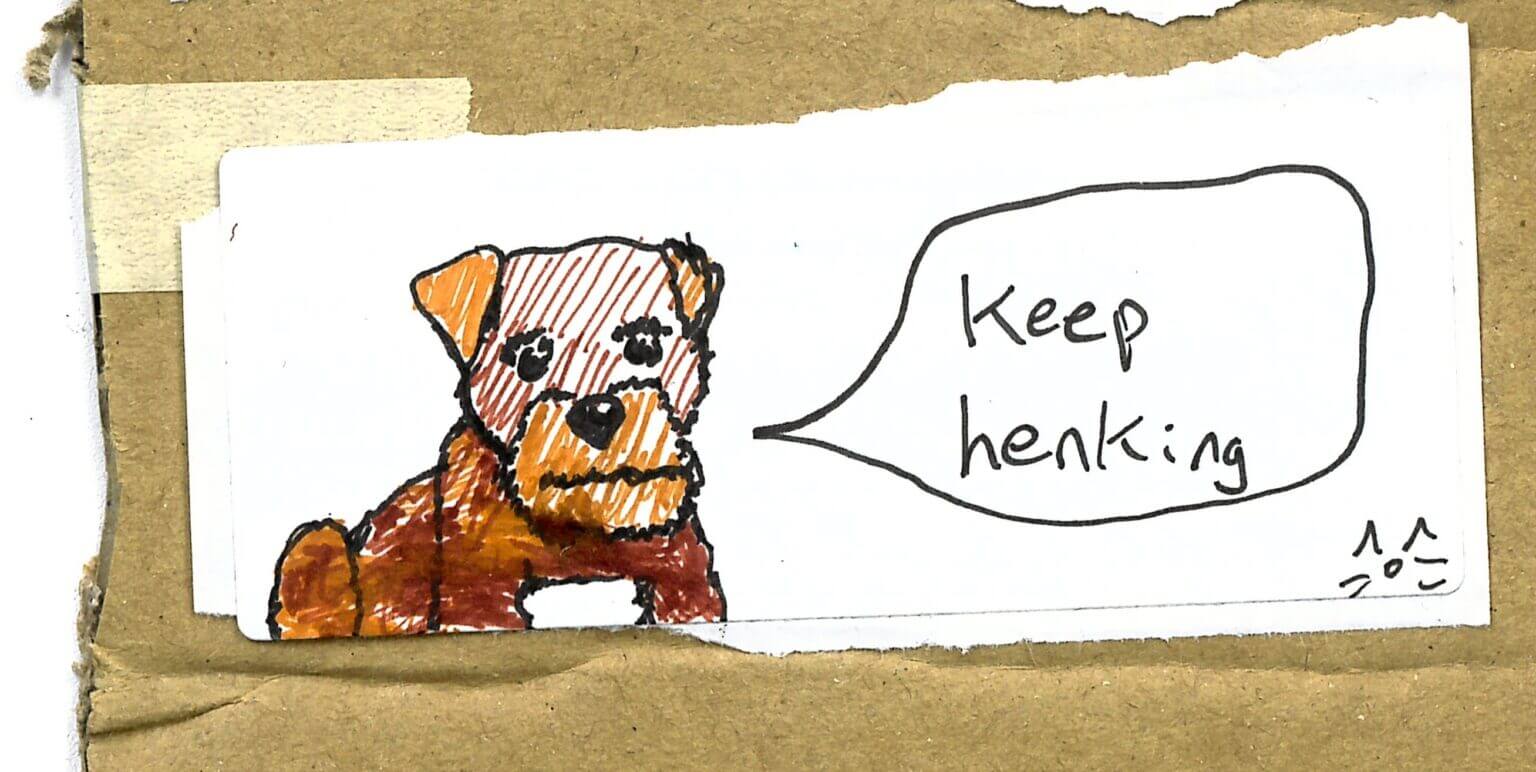 Keep
henking